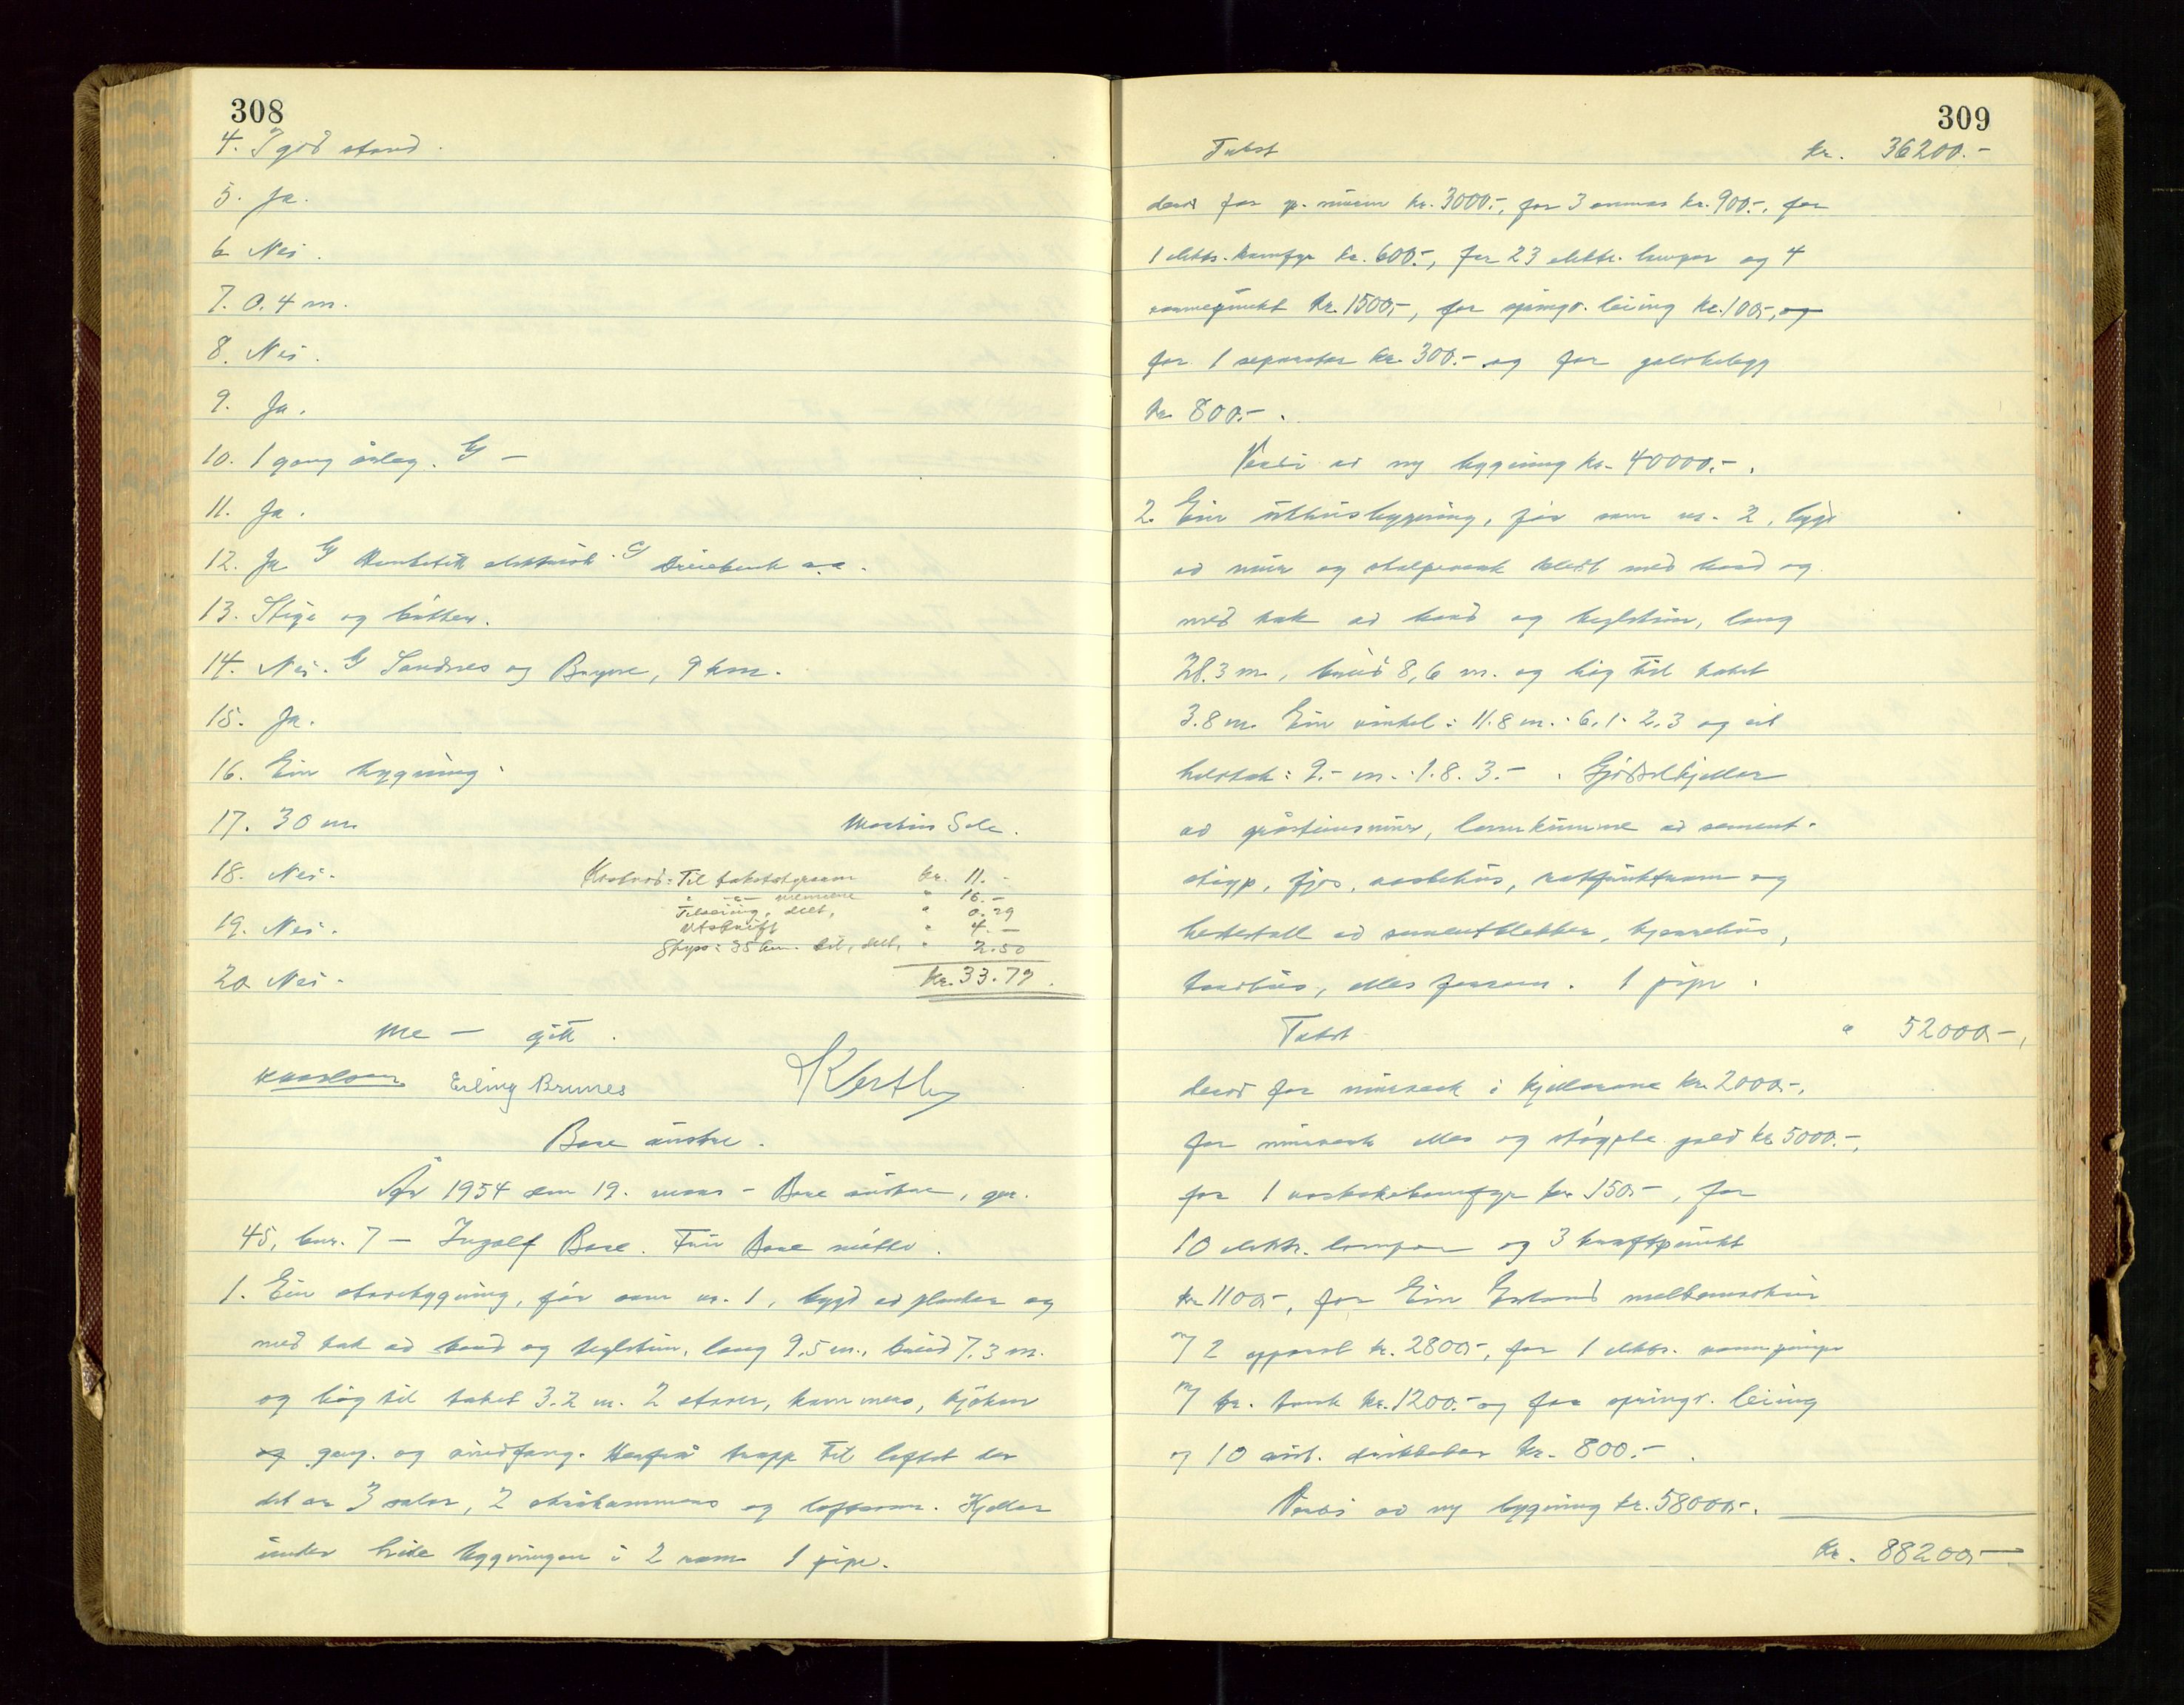 308
4. I god stand.
5. Ja.
6. Nei.
7. 0.4 m.
8. Nei.
9. Ja.
10. 1 gong årleg. G —
11. Ja.
12. Ja G elektrisk. G Dreiebenk o.a.
13. Stige og bøtter.
14. Nei. G Sandnes og Bryne, 9 km.
15. Ja.
16. Ein bygning.
17. 30 m.
Martin Sele.
18. Nei.
Kostnad: Til takststyraren kr. 11.-
" -"- mennene " 16.-
19. Nei.
Tilseiing, delt, " 0.29
Utskrift " 4.-
Skyss: 35 km. til, delt, " 2.50
20. Nei.
kr. 33.79.
Me — gitt.
Erling Brunes
Bore austre.
År 1954 den 19. mars - Bore austre, gnr.
45, bnr. 7 — Ingolf Bore. Frå Bore møtte.
1. Ein stovebygning, før som nr. 1, bygd av plankar og
med tak av bord og teglstein, lang 9,5 m., breid 7,3 m.
og høg til taket 3.2 m. 2 stover, kammers, kjøken
og gang. og vindfang. Herfrå trapp til loftet der
det er 3 salar, 2 skråkammers og loftsrom. Kjellar
under heile bygningen i 2 rom 1 pipe.
309
Takst kr. 36200.-
derav for gr. muren kr. 3000.-, for 3 omnar kr. 900.-, for
1 elektr. komfyr kr. 600.-, for 23 elektr. lamper og 4
varmepunkt kr. 1500,-, for springv. leiing kr. 100,-, og
for 1 separator kr. 300.- og for golvbelegg
kr. 800.-.
Verdi av ny bygning kr. 40000.-.
2. Ein uthusbygning, før som nr. 2, bygd
av mur og stolpeverk kledt med bord og
med tak av bord og teglstein, lang
28.3 m., breid 8,6 m. og høg til taket
3.8 m. Ein vinkel: 11.8 m.: 6,1: 2,3 og eit
halvtak: 9.- m.: 1.8. 3.-. Gjødselkjellar
av gråsteinsmur, lannkumme av sement-
støyp, fjos, vaskehus, og
hestestall av sementblokker,
torvhus, elles forrom. 1 pipe.
Takst " 52000.-,
derav for murverk i kjellarane kr. 2000.-,
for murverk elles og støypte golv kr. 5000.-,
for 1 vaskekomfyr kr. 150.-, for
10 elektr. lamper og 3 kraftpunkt
kr. 1100.-, for Ein melkemaskin
m/ 2 apparat kr. 2800.-, for 1 elektr. vannpumpe
m/ tr. tank kr. 1200.- og for springv. leiing
og 10 aut. drikkekar kr. 800.-.
Verdi av ny bygning kr. 58000.-.
kr. 88200.-